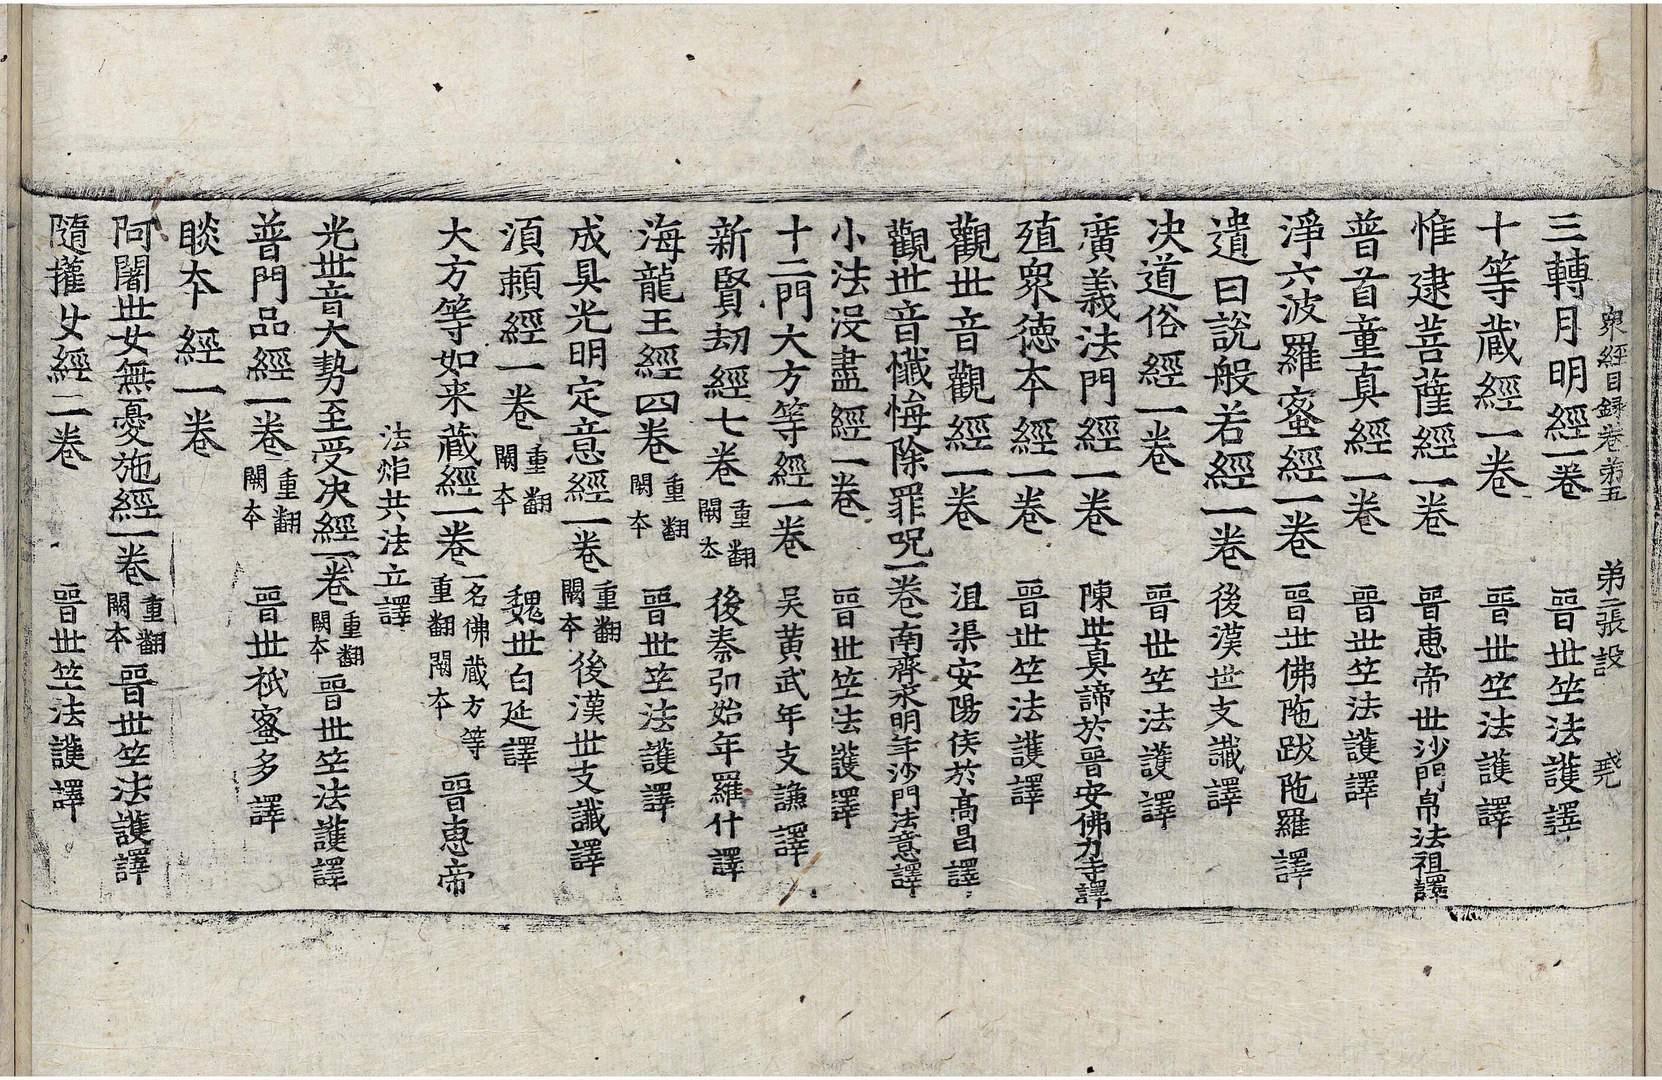 衆經目録卷苐五 苐二張 設
三轉月明經一卷 晉世竺法護譯
十等藏經一卷 晉世竺法護譯
惟逮菩薩經一卷 晉惠帝世沙門帛法祖譯
普首童真經一卷 晉世竺法護譯
淨六波羅蜜經一卷 晉世佛陁跋陁羅譯
遺曰説般若經一卷 後漢世支讖譯
决道俗經一卷 晉世竺法護譯
廣義法門經一卷 陳世真諦於晉安佛力寺譯
殖衆德夲經一卷 晉世竺法護譯
觀世音觀經一卷 沮渠安陽侯於髙昌譯
觀世音懺悔除罪呪一卷 南齊永明年沙門法意譯
小法没盡經一卷 晉世竺法護譯
十二門大方等經一卷 吴黄武年支謙譯
新賢劫經七卷 重翻闕夲 後秦弘始年羅什譯
海龍王經四卷 重翻闕夲 晉世竺法護譯
成具光明定意經一卷 重翻闕夲 後漢世支讖譯
湏賴經一卷 重翻闕夲 魏世白延譯
大方等如来藏經一卷 一名佛藏方等重翻闕夲 晉惠帝
法炬共法立譯
光世音大勢至受决經一卷 重翻闕夲 晉世竺法護譯
普門品經一卷 重翻闕夲 晉世祇蜜多譯
睒夲經一卷
阿闍世女無憂施經一卷 重翻闕夲 晉世竺法護譯
隨權女經二卷 晉世竺法護譯